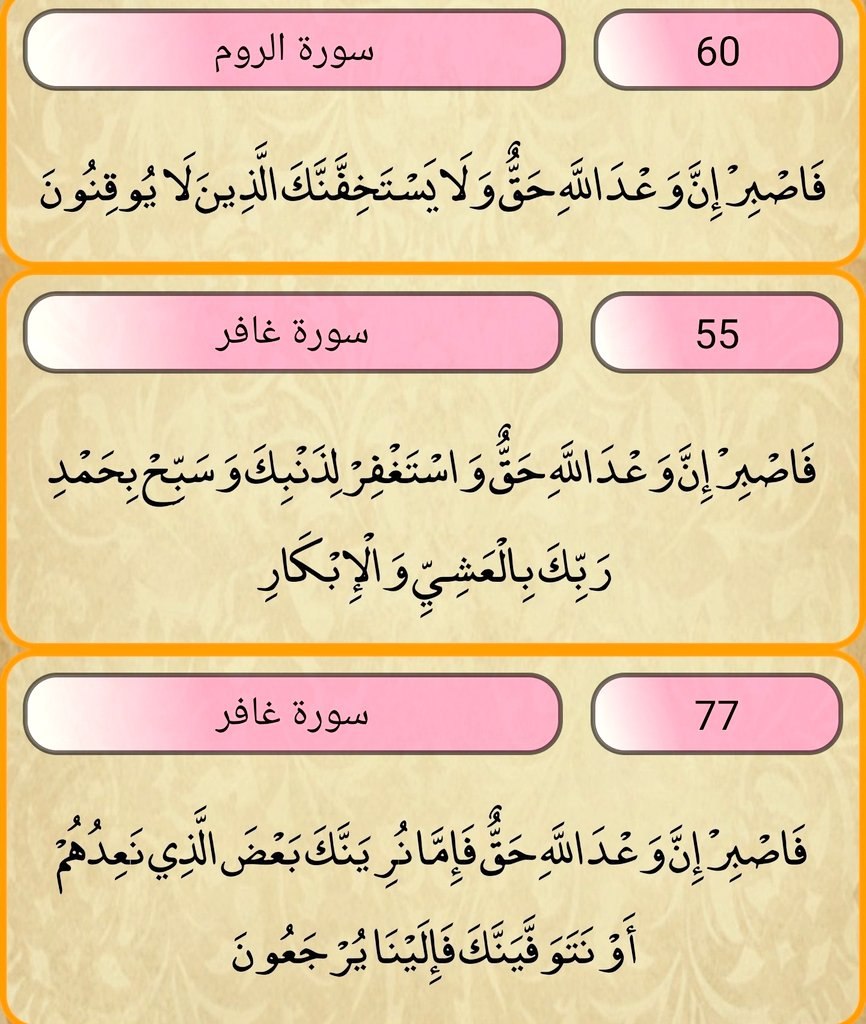 60 سورة الروم
فَاصْبِرْ إِنَّ وَعْدَ اللَّهِ حَقٌّ وَلَا يَسْتَخِفَّنَّكَ الَّذِينَ لَا يُوقِنُونَ
55 سورة غافر
فَاصْبِرْ إِنَّ وَعْدَ اللَّهِ حَقٌّ وَاسْتَغْفِرْ لِذَنْبِكَ وَسَبِّحْ بِحَمْدِ
رَبِّكَ بِالْعَشِيِّ وَالْإِبْكَارِ
77 سورة غافر
فَاصْبِرْ إِنَّ وَعْدَ اللَّهِ حَقٌّ فَإِمَّا نُرِيَنَّكَ بَعْضَ الَّذِي نَعِدُهُمْ
أَوْ نَتَوَفَّيَنَّكَ فَإِلَيْنَا يُرْجَعُونَ